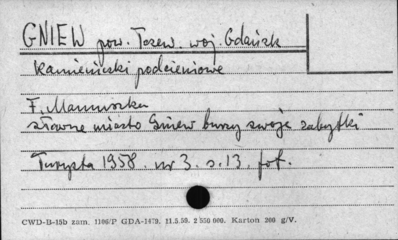 GNIEW pow. Tczew. woj. Gdańsk
Kamieniczki podcieniowe
F. Mamuszka
słowne miasto Gniew burzy swoje zabytki
Turysta 1958. nr 3. s. 13. fot.
CWD-B-15b zam. 1106/P GDA-1479. 11.5.59. 2 550 000. Karton 200 g/V.